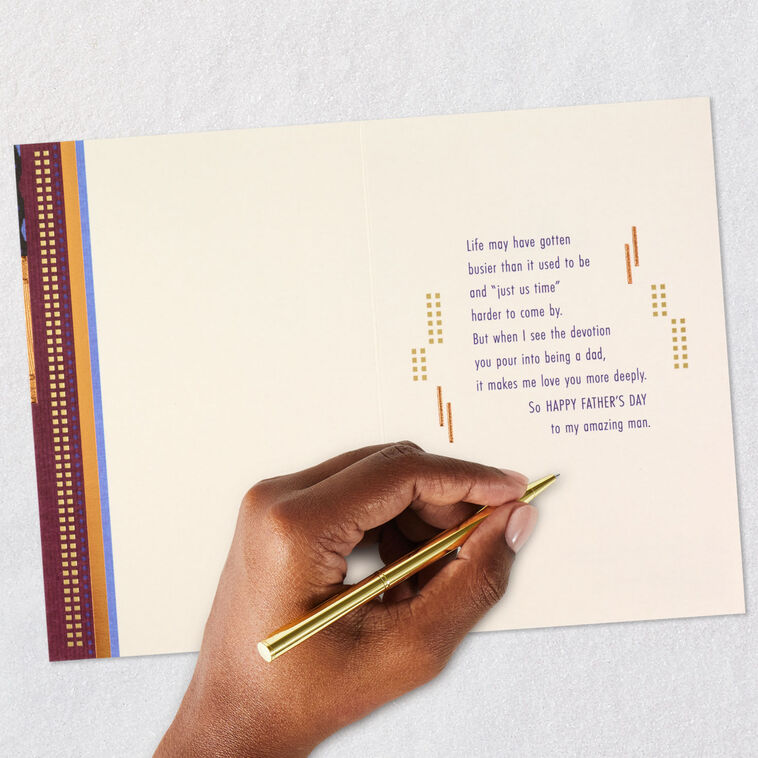 Life may have gotten
busier than it used to be
and “just us time”
harder to come by.
But when I see the devotion
you pour into being a dad,
it makes me love you more deeply.
So HAPPY FATHER'S DAY
to my amazing man.